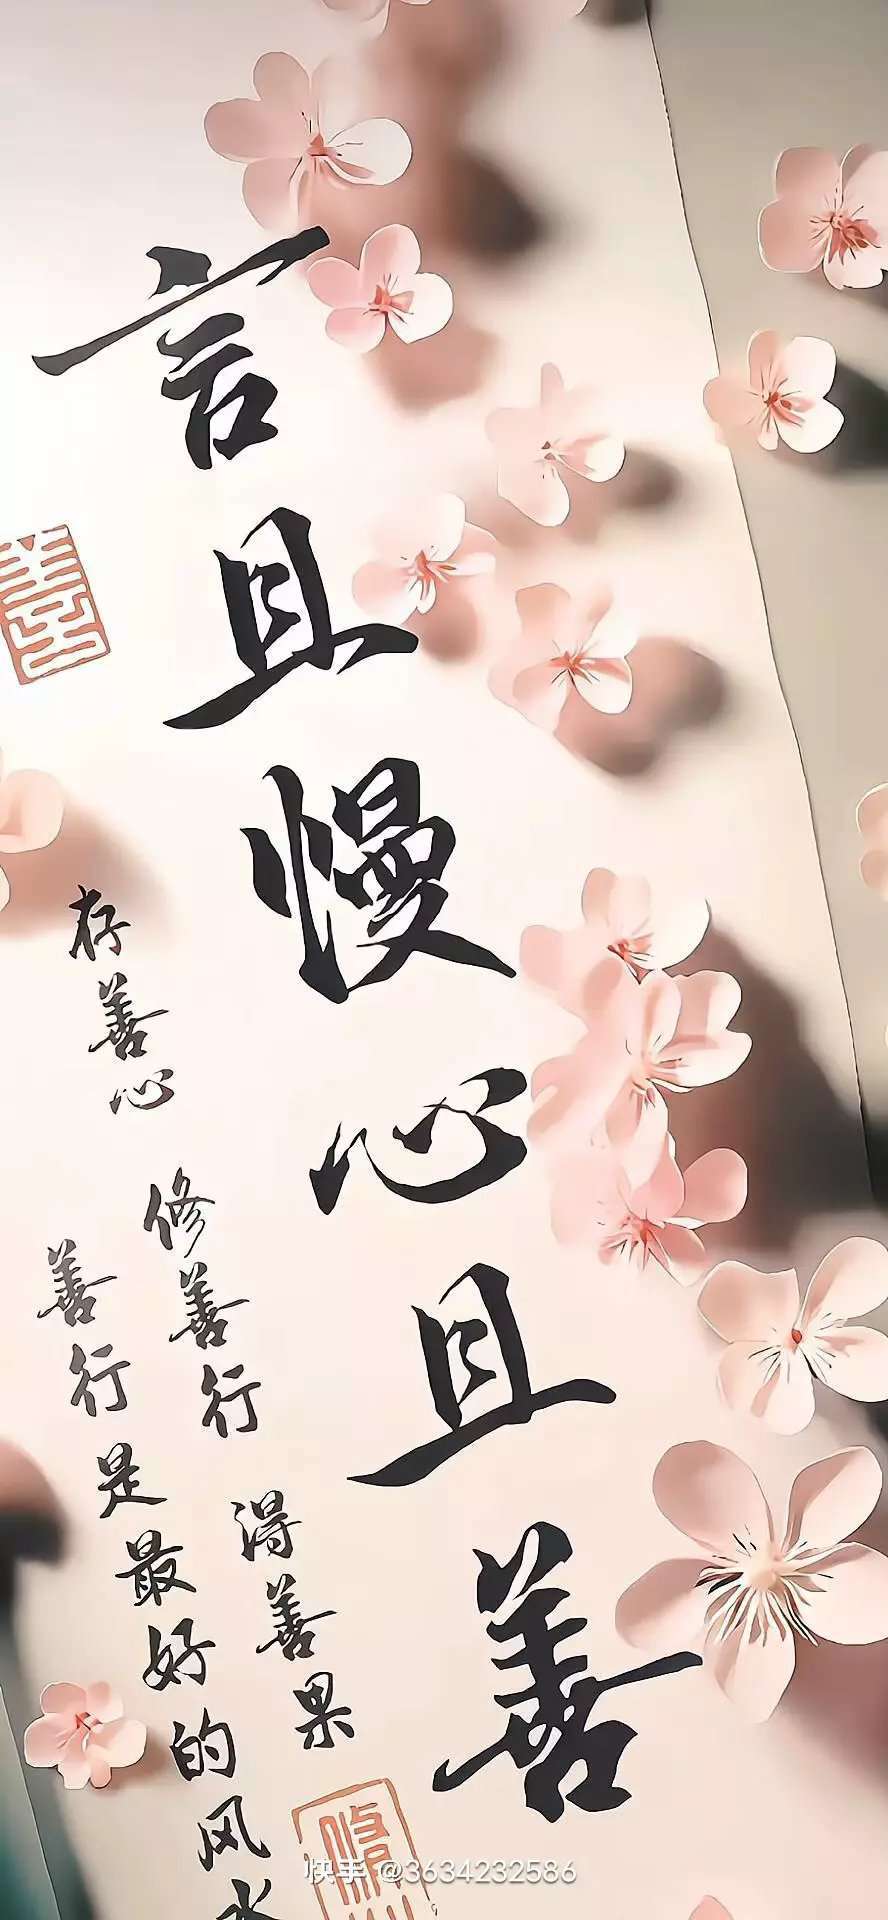 言且慢心且善
存善心 修善行 得善果
善行是最好的风水
善
快手 @3634232586